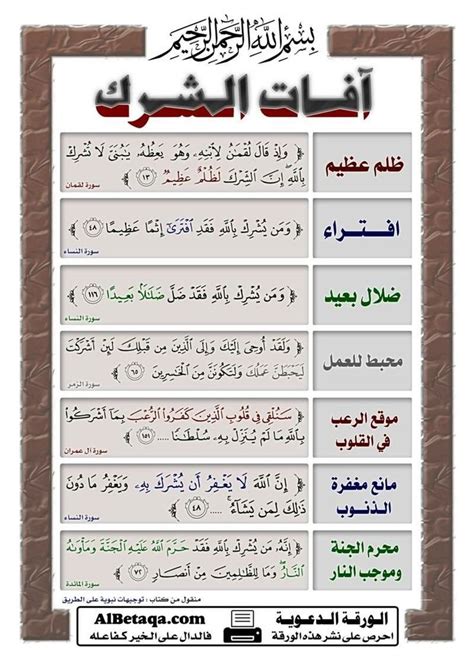 بسم الله الرحمن الرحيم
آفات الشرك
ظلم عظيم
﴿ وَإِذْ قَالَ لُقْمَٰنُ لِٱبْنِهِۦ وَهُوَ يَعِظُهُۥ يَٰبُنَىَّ لَا تُشْرِكْ
بِٱللَّهِ إِنَّ ٱلشِّرْكَ لَظُلْمٌ عَظِيمٌ ١٣ ﴾
سورة لقمان
افتراء
﴿ وَمَن يُشْرِكْ بِٱللَّهِ فَقَدِ ٱفْتَرَىٰٓ إِثْمًا عَظِيمًا ٤٨ ﴾
سورة النساء
ضلال بعيد
﴿ وَمَن يُشْرِكْ بِٱللَّهِ فَقَدْ ضَلَّ ضَلَٰلًۢا بَعِيدًا ١١٦ ﴾
سورة النساء
محبط للعمل
﴿ وَلَقَدْ أُوحِىَ إِلَيْكَ وَإِلَى ٱلَّذِينَ مِن قَبْلِكَ لَئِنْ أَشْرَكْتَ
لَيَحْبَطَنَّ عَمَلُكَ وَلَتَكُونَنَّ مِنَ ٱلْخَٰسِرِينَ ٦٥ ﴾
سورة الزمر
موقع الرعب
في القلوب
﴿ سَنُلْقِى فِى قُلُوبِ ٱلَّذِينَ كَفَرُوا۟ ٱلرُّعْبَ بِمَآ أَشْرَكُوا۟
بِٱللَّهِ مَا لَمْ يُنَزِّلْ بِهِۦ سُلْطَٰنًا ..... ١٥١ ﴾
سورة آل عمران
مانع مغفرة
الذنوب
﴿ إِنَّ ٱللَّهَ لَا يَغْفِرُ أَن يُشْرَكَ بِهِۦ وَيَغْفِرُ مَا دُونَ
ذَٰلِكَ لِمَن يَشَآءُ ..... ٤٨ ﴾
سورة النساء
محرم الجنة
وموجب النار
﴿ إِنَّهُۥ مَن يُشْرِكْ بِٱللَّهِ فَقَدْ حَرَّمَ ٱللَّهُ عَلَيْهِ ٱلْجَنَّةَ وَمَأْوَىٰهُ
ٱلنَّارُ وَمَا لِلظَّٰلِمِينَ مِنْ أَنصَارٍ ٧٢ ﴾
سورة المائدة
منقول من كتاب : توجيهات نبوية على الطريق
الورقة الدعوية
احرص على نشر هذه الورقة
AlBetaqa.com
فالدال على الخير كفاعله